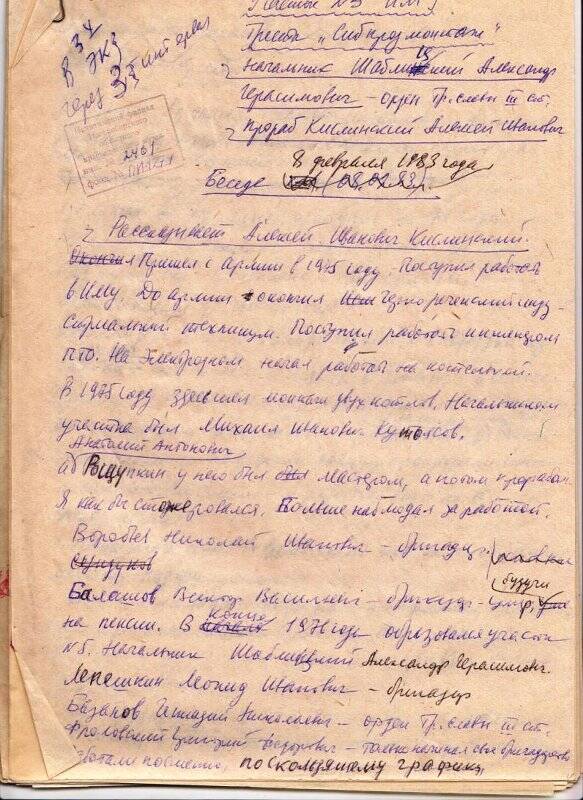 Участок № 5 ИМУ
Треста „Сибпродмонтаж"
Начальник Шаблинский Александр
Герасимович – орден Тр. Славы III ст.
Прораб Кислинский Алексей Иванович
В 34
ЭКЗ
через 3 интервал
2461
8 февраля 1983 года
Беседа (08.02.83)
Рассказывает Алексей Иванович Кислинский.
Пришел с армии в 1975 году. Поступил работать
в ИМУ. До армии окончил Чернореченский инду-
стриальный техникум. Поступил работать инженером
ПТО. На Электродном начал работать на котельной.
В 1975 году здесь шел монтаж двух котлов. Начальником
участка был Михаил Иванович
Анатолий Антонович
а Ващупкин у него был мастером, а потом прорабом.
Я как бы стажировался. Больше наблюдал за работой.
Воробьев Николай Иванович – бригадир.
будучи
Балашов Виктор Васильевич – бригадир – умер,
на пенсии. В конце 1976 года образовался участок
№ 5. Начальник Шаблинский Александр Герасимович.
Лепешкин Леонид Иванович – бригадир
Базанов Геннадий Николаевич – орден Тр. Славы III ст.
Фроловский Дмитрий Федорович – только начинал свое бригадирство
работали посменно, по скользящему графику,